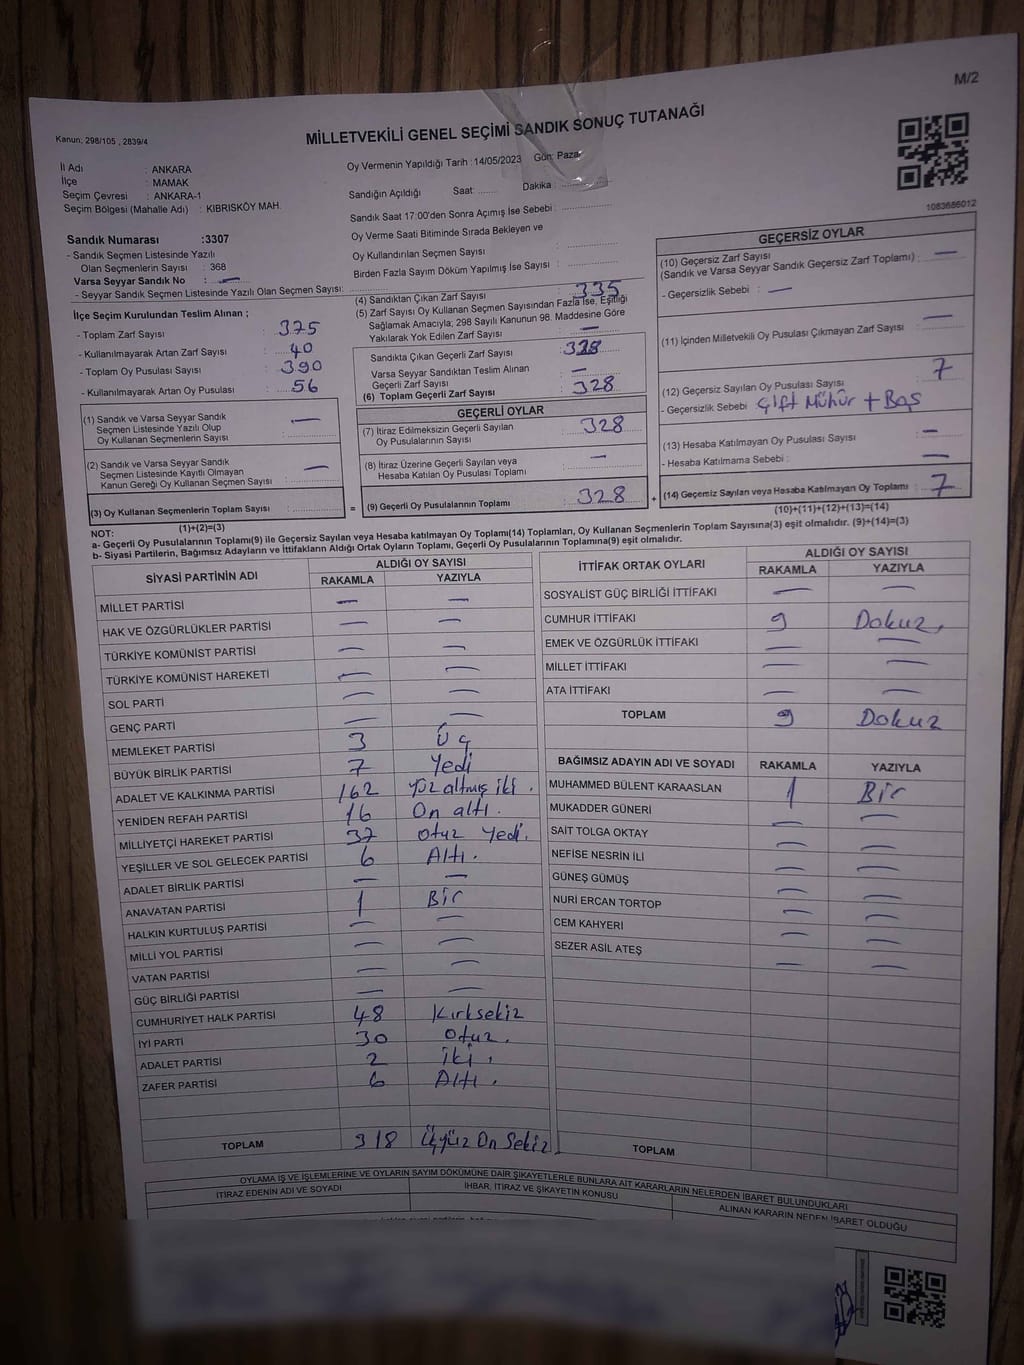 M/2
Kanun: 298/105 , 2839/4
MİLLETVEKİLİ GENEL SEÇİMİ SANDIK SONUÇ TUTANAĞI
İl Adı : ANKARA
İlçe : MAMAK
Seçim Çevresi : ANKARA-1
Seçim Bölgesi (Mahalle Adı) : KIBRISKÖY MAH.
Oy Vermenin Yapıldığı Tarih : 14/05/2023 Gün: Pazar
Sandığın Açıldığı Saat: ........ Dakika : ..............
Sandık Saat 17:00'den Sonra Açımış İse Sebebi : ................
Oy Verme Saati Bitiminde Sırada Bekleyen ve
Oy Kullandırılan Seçmen Sayısı : ................
Birden Fazla Sayım Döküm Yapılmış İse Sayısı : ................
1083686012
Sandık Numarası :3307
- Sandık Seçmen Listesinde Yazılı
Olan Seçmenlerin Sayısı : 368
Varsa Seyyar Sandık No : —
- Seyyar Sandık Seçmen Listesinde Yazılı Olan Seçmen Sayısı: ................
İlçe Seçim Kurulundan Teslim Alınan ;
- Toplam Zarf Sayısı : 375
- Kullanılmayarak Artan Zarf Sayısı : 40
- Toplam Oy Pusulası Sayısı : 390
- Kullanılmayarak Artan Oy Pusulası : 56
(1) Sandık ve Varsa Seyyar Sandık
Seçmen Listesinde Yazılı Olup
Oy Kullanan Seçmenlerin Sayısı : —
(2) Sandık ve Varsa Seyyar Sandık
Seçmen Listesinde Kayıtlı Olmayan
Kanun Gereği Oy Kullanan Seçmen Sayısı : —
(3) Oy Kullanan Seçmenlerin Toplam Sayısı : ................
(1)+(2)=(3)
(4) Sandıktan Çıkan Zarf Sayısı : 335
(5) Zarf Sayısı Oy Kullanan Seçmen Sayısından Fazla İse, Eşitliği
Sağlamak Amacıyla; 298 Sayılı Kanunun 98. Maddesine Göre
Yakılarak Yok Edilen Zarf Sayısı : —
Sandıkta Çıkan Geçerli Zarf Sayısı : 328
Varsa Seyyar Sandıktan Teslim Alınan
Geçerli Zarf Sayısı : —
(6) Toplam Geçerli Zarf Sayısı : 328
GEÇERLİ OYLAR
(7) İtiraz Edilmeksizin Geçerli Sayılan
Oy Pusulalarının Sayısı : 328
(8) İtiraz Üzerine Geçerli Sayılan veya
Hesaba Katılan Oy Pusulası Toplamı : —
= (9) Geçerli Oy Pusulalarının Toplamı : 328
GEÇERSİZ OYLAR
(10) Geçersiz Zarf Sayısı
(Sandık ve Varsa Seyyar Sandık Geçersiz Zarf Toplamı) : —
- Geçersizlik Sebebi : —
(11) İçinden Milletvekili Oy Pusulası Çıkmayan Zarf Sayısı : —
(12) Geçersiz Sayılan Oy Pusulası Sayısı : 7
- Geçersizlik Sebebi : Çift Mühür + Boş
(13) Hesaba Katılmayan Oy Pusulası Sayısı : —
- Hesaba Katılmama Sebebi : —
+ (14) Geçersiz Sayılan veya Hesaba Katılmayan Oy Toplamı : 7
(10)+(11)+(12)+(13)=(14)
NOT:
a- Geçerli Oy Pusulalarının Toplamı(9) ile Geçersiz Sayılan veya Hesaba katılmayan Oy Toplamı(14) Toplamları, Oy Kullanan Seçmenlerin Toplam Sayısına(3) eşit olmalıdır. (9)+(14)=(3)
b- Siyasi Partilerin, Bağımsız Adayların ve İttifakların Aldığı Ortak Oyların Toplamı, Geçerli Oy Pusulalarının Toplamına(9) eşit olmalıdır.
SİYASİ PARTİNİN ADI ALDIĞI OY SAYISI
RAKAMLA YAZIYLA
MİLLET PARTİSİ — —
HAK VE ÖZGÜRLÜKLER PARTİSİ — —
TÜRKİYE KOMÜNİST PARTİSİ — —
TÜRKİYE KOMÜNİST HAREKETİ — —
SOL PARTİ — —
GENÇ PARTİ — —
MEMLEKET PARTİSİ 3 Üç
BÜYÜK BİRLİK PARTİSİ 7 Yedi
ADALET VE KALKINMA PARTİSİ 162 Yüz altmış iki .
YENİDEN REFAH PARTİSİ 16 On altı .
MİLLİYETÇİ HAREKET PARTİSİ 37 Otuz Yedi.
YEŞİLLER VE SOL GELECEK PARTİSİ 6 Altı .
ADALET BİRLİK PARTİSİ — —
ANAVATAN PARTİSİ 1 Bir
HALKIN KURTULUŞ PARTİSİ — —
MİLLİ YOL PARTİSİ — —
VATAN PARTİSİ — —
GÜÇ BİRLİĞİ PARTİSİ — —
CUMHURİYET HALK PARTİSİ 48 Kırksekiz
İYİ PARTİ 30 Otuz .
ADALET PARTİSİ 2 İki .
ZAFER PARTİSİ 6 Altı .
TOPLAM 318 Üçyüz On Sekiz
İTTİFAK ORTAK OYLARI ALDIĞI OY SAYISI
RAKAMLA YAZIYLA
SOSYALİST GÜÇ BİRLİĞİ İTTİFAKI — —
CUMHUR İTTİFAKI 9 Dokuz .
EMEK VE ÖZGÜRLÜK İTTİFAKI — —
MİLLET İTTİFAKI — —
ATA İTTİFAKI — —
TOPLAM 9 Dokuz
BAĞIMSIZ ADAYIN ADI VE SOYADI RAKAMLA YAZIYLA
MUHAMMED BÜLENT KARAASLAN 1 Bir
MUKADDER GÜNERİ — —
SAİT TOLGA OKTAY — —
NEFİSE NESRİN İLİ — —
GÜNEŞ GÜMÜŞ — —
NURİ ERCAN TORTOP — —
CEM KAHYERİ — —
SEZER ASİL ATEŞ — —
TOPLAM
OYLAMA İŞ VE İŞLEMLERİNE VE OYLARIN SAYIM DÖKÜMÜNE DAİR ŞİKAYETLERLE BUNLARA AİT KARARLARIN NELERDEN İBARET BULUNDUKLARI
İTİRAZ EDENİN ADI VE SOYADI
İHBAR, İTİRAZ VE ŞİKAYETİN KONUSU
ALINAN KARARIN NEDEN İBARET OLDUĞU